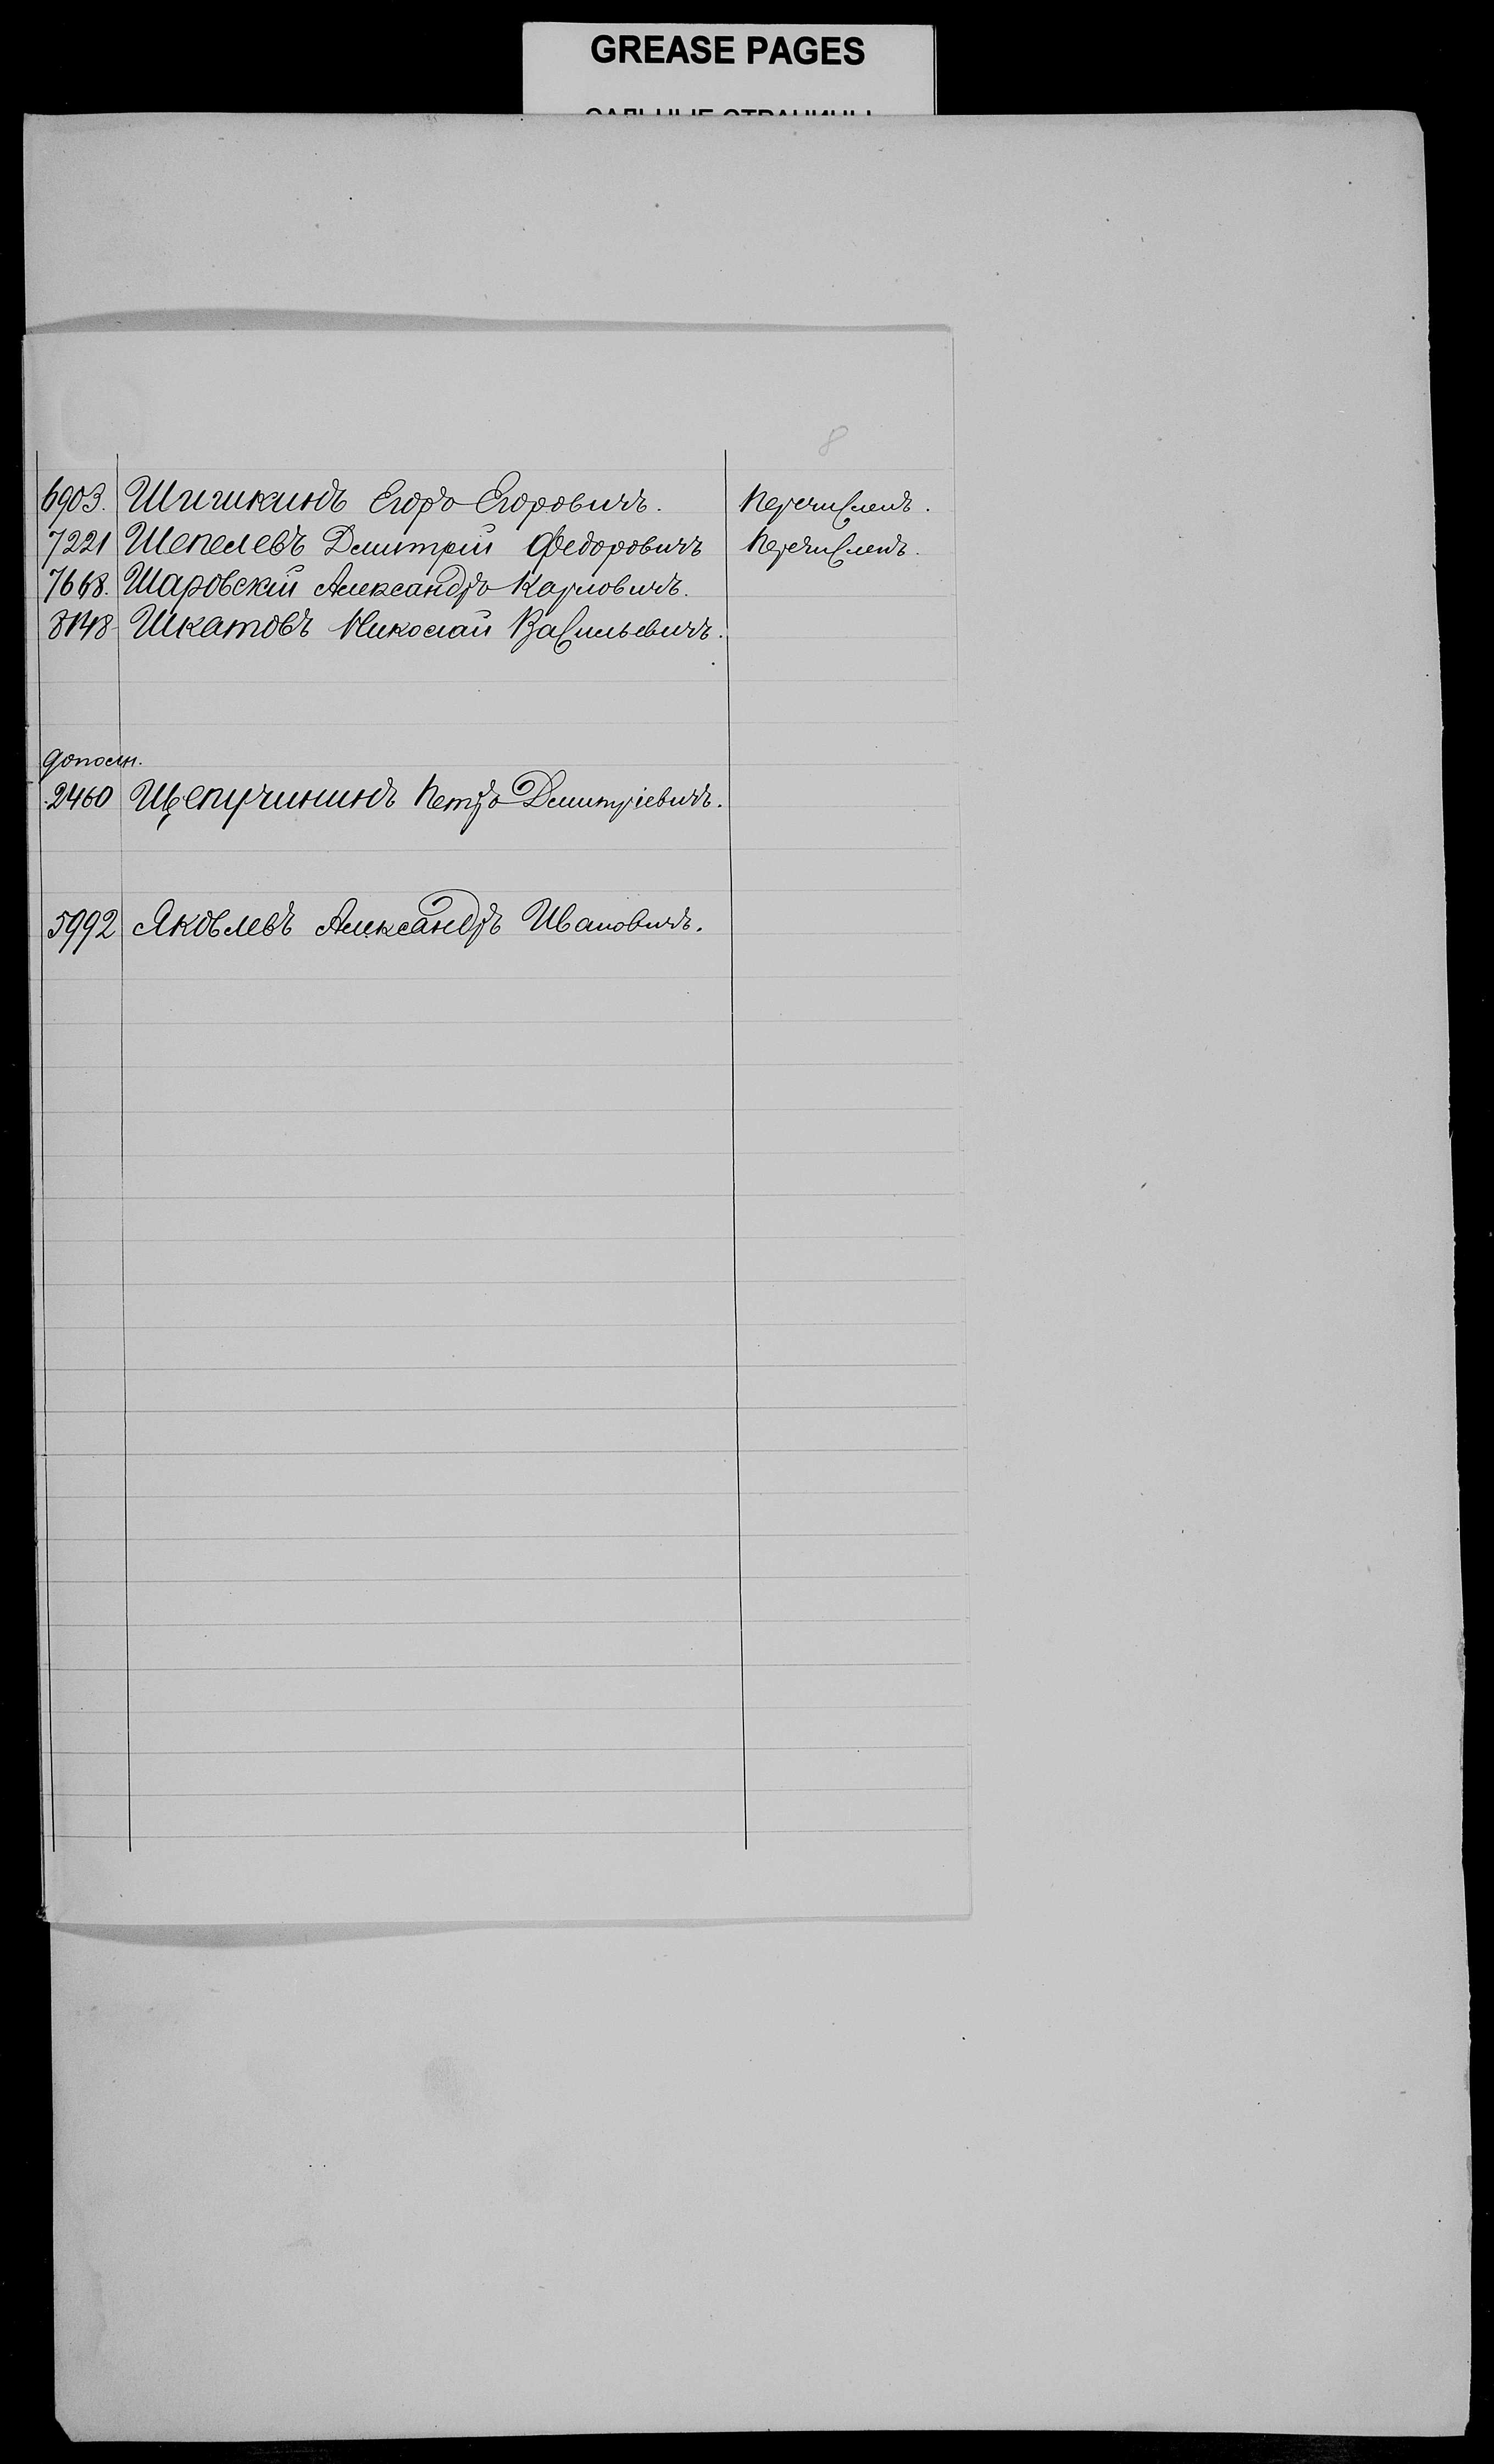 GREASE PAGES
САЛЬНЫЕ СТРАНИЦЫ
8
6903. Шишкинъ Егоръ Егоровичъ. Перечисленъ.
7221 Шепелевъ Дмитрій Федоровичъ Перечисленъ.
7668. Шаровскій Александръ Карловичъ.
8148 Шкатовъ Николай Васильевичъ.
дополн.
2460 Щепучининъ Петръ Дмитріевичъ.
5992 Яковлевъ Александръ Ивановичъ.